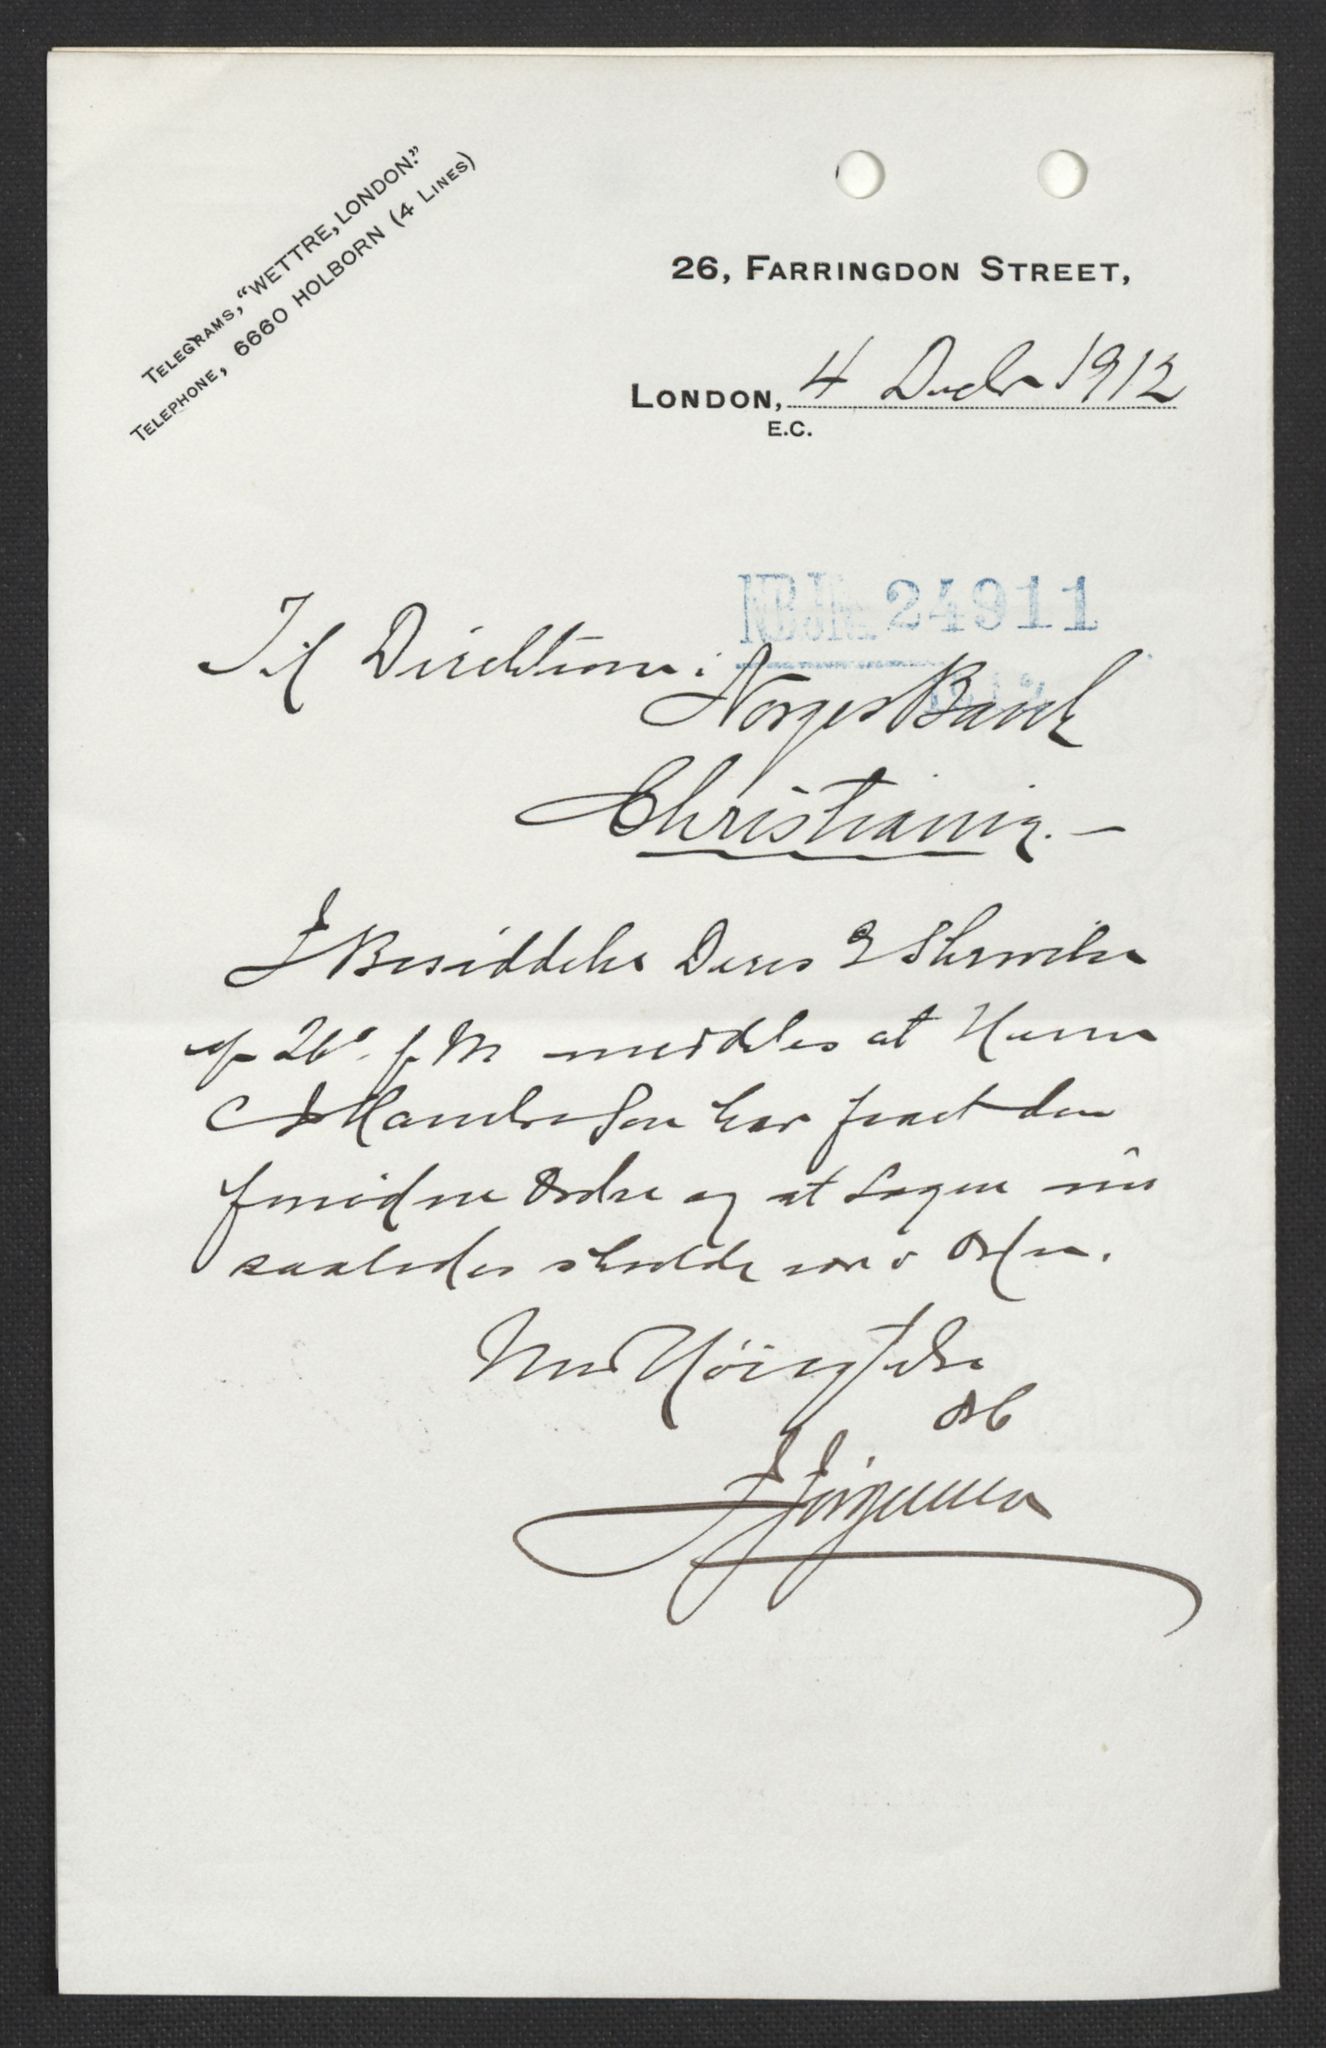 TELEGRAMS, "WETTRE, LONDON."
TELEPHONE, 6660 HOLBORN (4 LINES)
26, FARRINGDON STREET,
LONDON, 4 Decbr 1912
E.C.
24911
1912
Til Direktionen i
Norges Bank
Christiania. —
I Besiddelse Deres Skrivelse
af 26. f M meddeles at Herrer
C J Hambro & Son har faaet den
fornødne Ordre og at Sagen nu
saaledes skulde være i Orden.
Med Høiagtelse
J Jörgensen